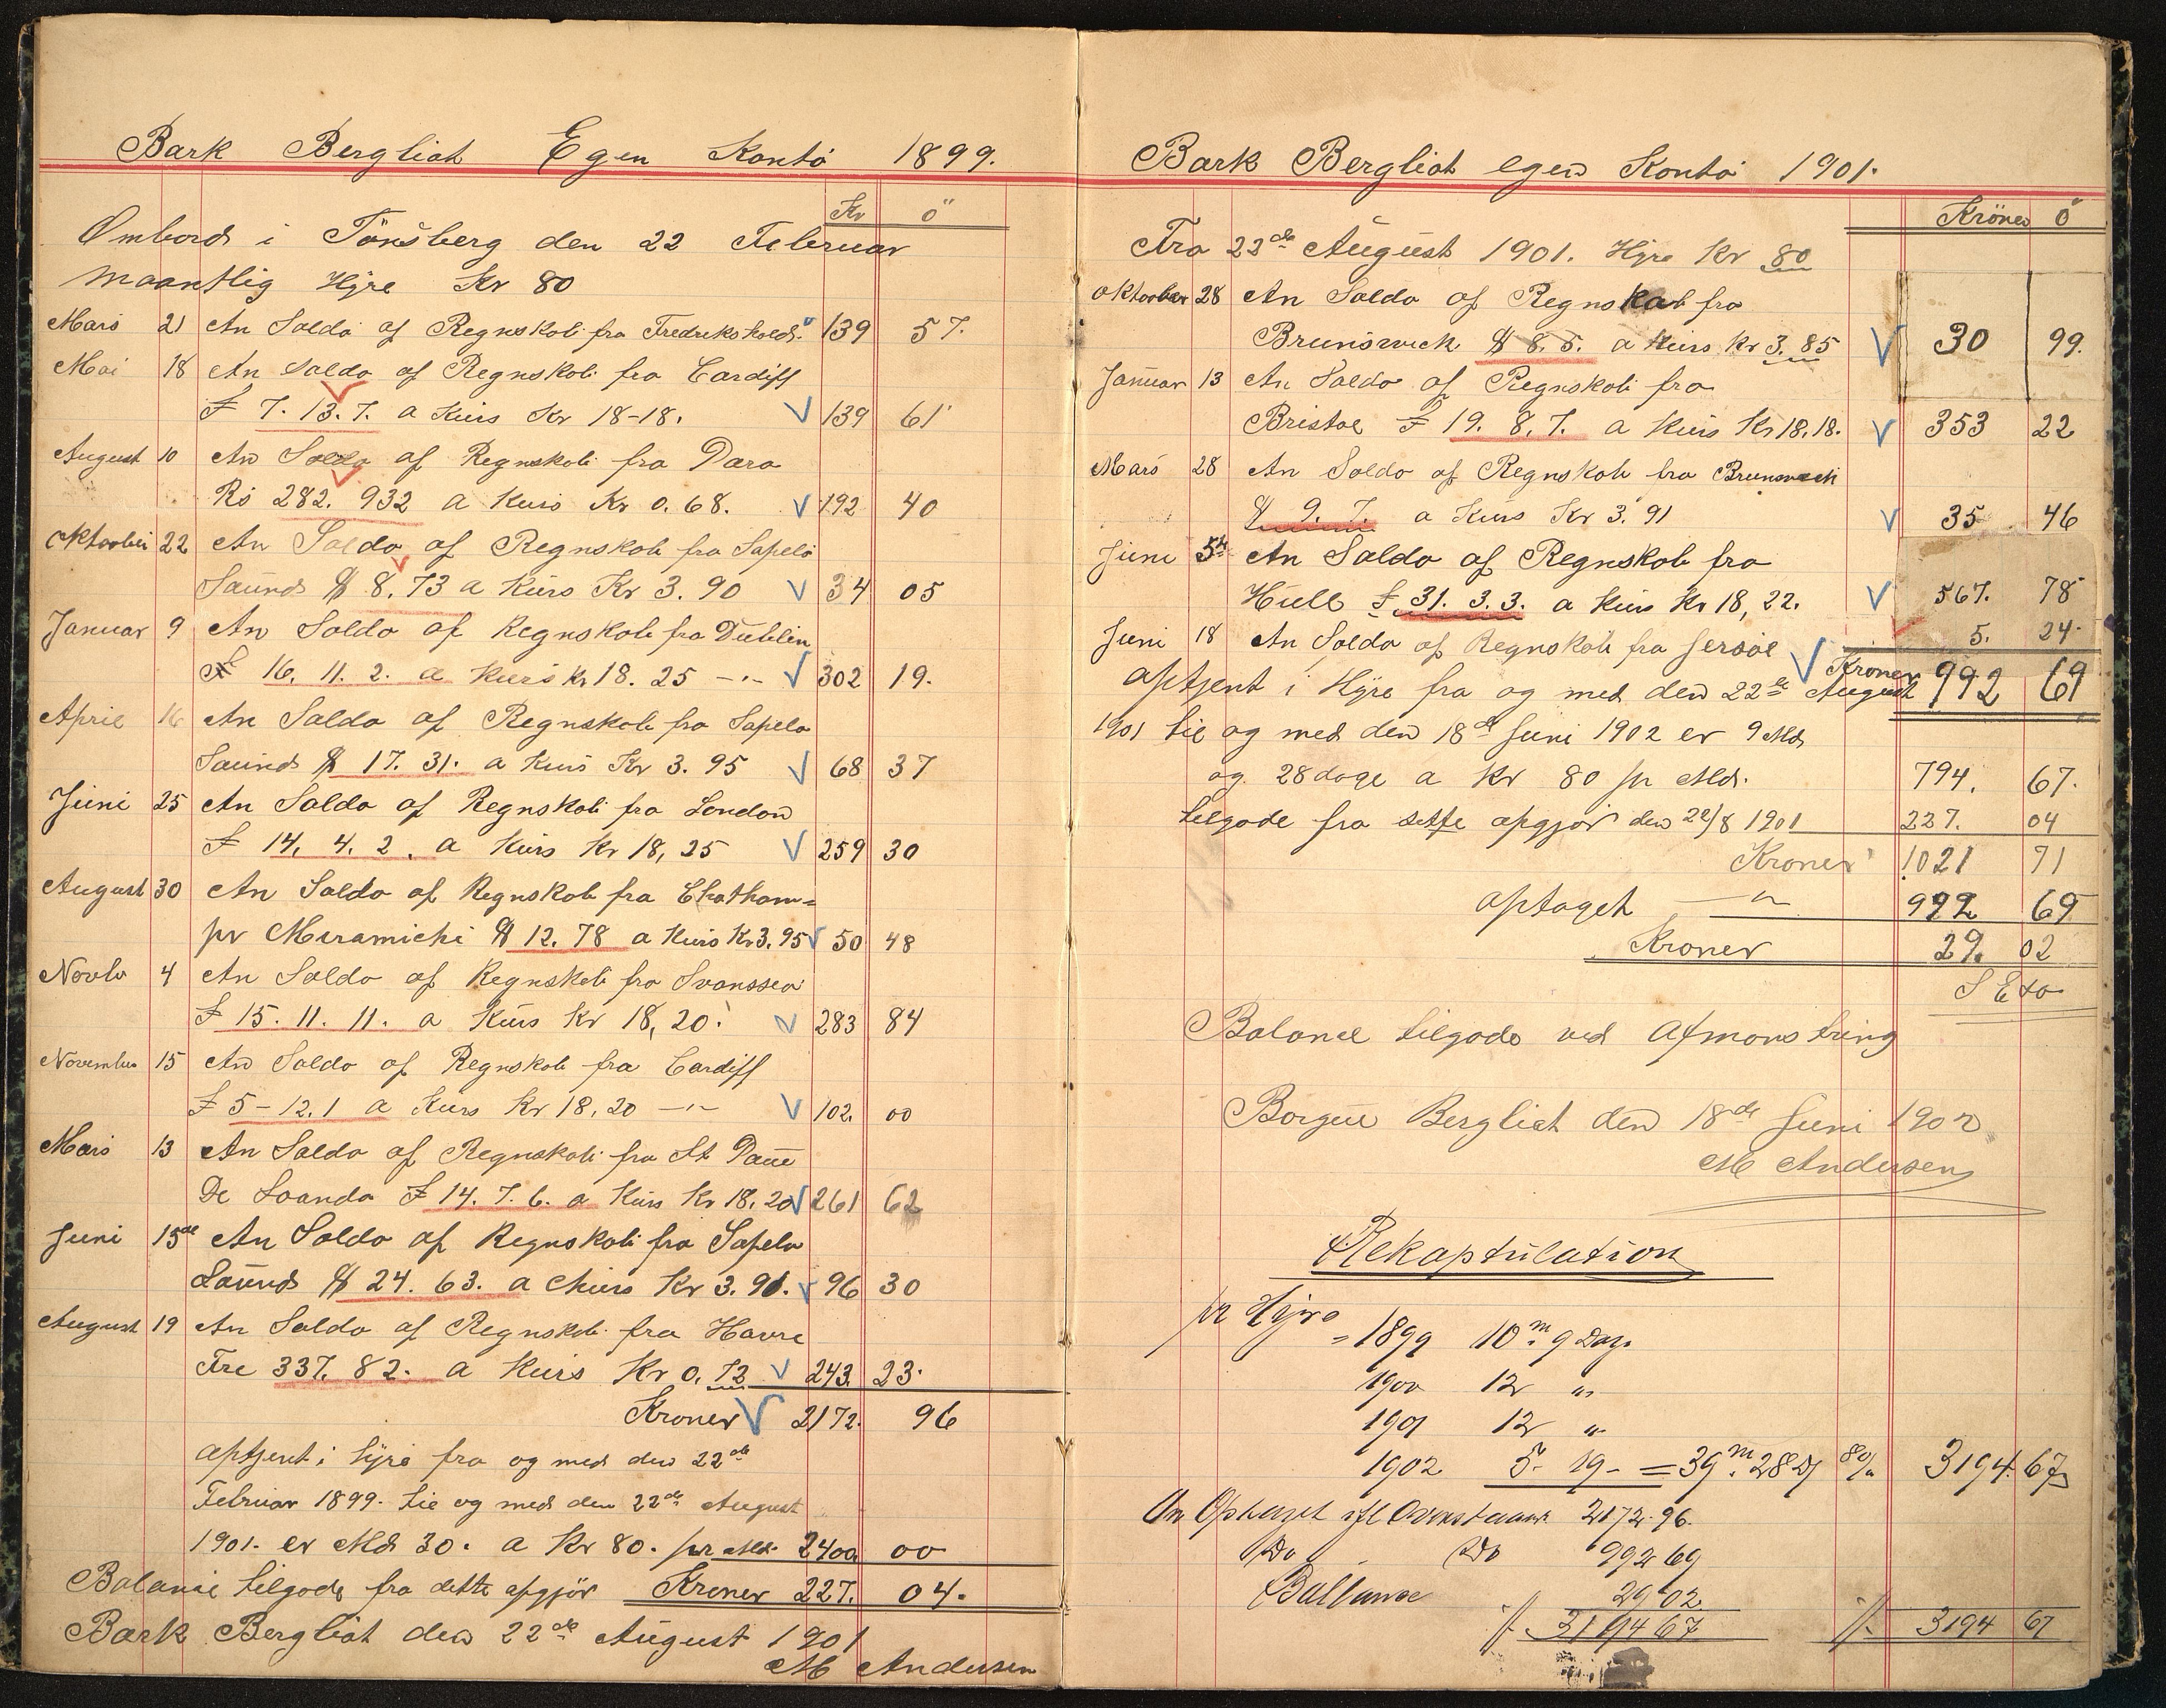 Bark Bergliot Egen Konto 1899.
Kr ö
Ombord i Tönsberg den 22 Februar
maantlig Hyre Kr 80
Mars 21 An Saldo af Regnskab fra Fredrikshald. 139 57.
Mai 18 An Saldo af Regnskab fra Cardiff
£ 7. 13. 7. a Kurs Kr 18-18. 139 61
August 10 An Saldo af Regnskab fra Para
Rs 282. 932 a Kurs Kr 0. 68. 192 40
Oktober 22 An Saldo af Regnskab fra Sapelo
Saund $ 8. 73 a Kurs Kr 3. 90 34 05
Januar 9 An Saldo af Regnskab fra Dublin
£ 16. 11. 2. a Kurs Kr 18. 25 -"- 302 19.
April 16 An Saldo af Regnskab fra Sapelo
Saund $ 17. 31. a Kurs Kr 3. 95 68 37
Juni 25 An Saldo af Regnskab fra London
£ 14. 4. 2. a Kurs Kr 18, 25 259 30
August 30 An Saldo af Regnskab fra Chatham=
pr Miramichi $ 12. 78 a Kurs Kr 3. 95 50 48
Novb 4 An Saldo af Regnskab fra Svanssea
£ 15. 11. 11. a Kurs Kr 18, 20. 283 84
November 15 An Saldo af Regnskab fra Cardiff
£ 5-12. 1 a Kurs Kr 18, 20 -"- 102. 00
Mars 13 An Saldo af Regnskab fra St Paul
De Loanda £ 14. 7. 6. a Kurs Kr 18. 20 261 62
Juni 15de An Saldo af Regnskab fra Sapelo
Saund $ 24. 63. a Kurs Kr 3. 91. 96 30
August 19 An Saldo af Regnskab fra Havre
Frc 337. 82. a Kurs Kr 0. 72 243. 23.
Kroner 2172. 96
optjent i hyre fra og med den 22de
Februar 1899. til og med den 22de August
1901. er Md 30. a Kr 80. pr Md. 2400 00
Balance tilgode fra dette opgjör Kroner 227. 04.
Bark Bergliot den 22de August 1901
M Andersen
Bark Bergliot egen Konto 1901.
Kroner Ö
Fra 22de August 1901. Hyre Kr 80
Oktober 28 An Saldo af Regnskab fra
Brunswick $ 8. 5. a Kurs Kr 3. 85 30 99.
Januar 13 An Saldo af Regnskab fra
Bristol £ 19. 8. 7. a Kurs Kr 18. 18. 353 22
Mars 28 An Saldo af Regnskab fra Brunswick
$ 9. 7. a Kurs Kr 3. 91 35 46
Juni 5te An Saldo af Regnskab fra
Hull £ 31. 3. 3. a Kurs Kr 18, 22. 567. 78
Juni 18 An Saldo af Regnskab fra 5. 24.
optjent i Hyre fra og med den 22de August Kroner 992 69
1901 til og med den 18de Juni 1902 er 9 Md
og 28 dage a Kr 80 pr Md. 794. 67.
tilgode fra sidste opgjör den 22/8 1901 227. 04
Kroner 1021 71
optaget -"- 992 69
Kroner 29. 02
S E&o
Balance tilgode ved Afmonstring
Bergliot den 18de Juni 1902
M Andersen
Rekaptulation
pr Hyre
= 1899 10 m. 9 Dage
1900 12 "
1901 12 "
1902 5- 19- = 39 m. 28 D 80/" 3194. 67
An Optaget 2172. 96.
Do Do 992 69
Ballance 29 02
3194 67 3194 67